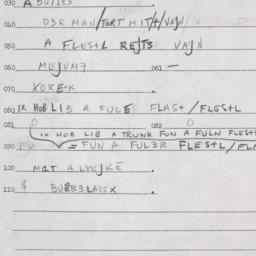 030 A BUTL3S
040 D3R MAN/TORT MIT/H/VAJN
050 A FLES+L REJTS VAJN
060 MEJVM7 061 —
070 KORE-K
080 IX HOB LIB A FULE FLAS+/FLES+L
081 0 082 0
IX HOB LIB A TRUNK FUN A FULN FLES+
090 = FUN A FUL3R FLES+L/FL
100 M1T A KE .
110 $ BU3LASX .